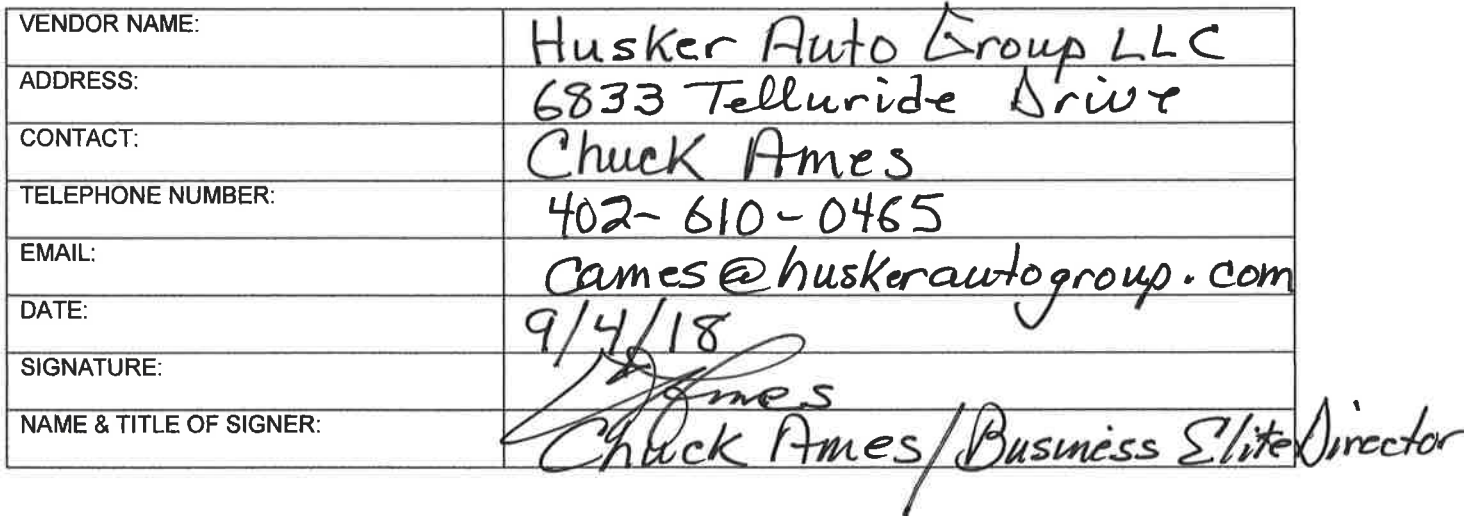 VENDOR NAME: Husker Auto Group LLC
ADDRESS: 6833 Telluride Drive
CONTACT: Chuck Ames
TELEPHONE NUMBER: 402-610-0465
EMAIL: cames@huskerautogroup.com
DATE: 9/4/18
SIGNATURE: Ames
NAME & TITLE OF SIGNER: Chuck Ames/Business Elite Director